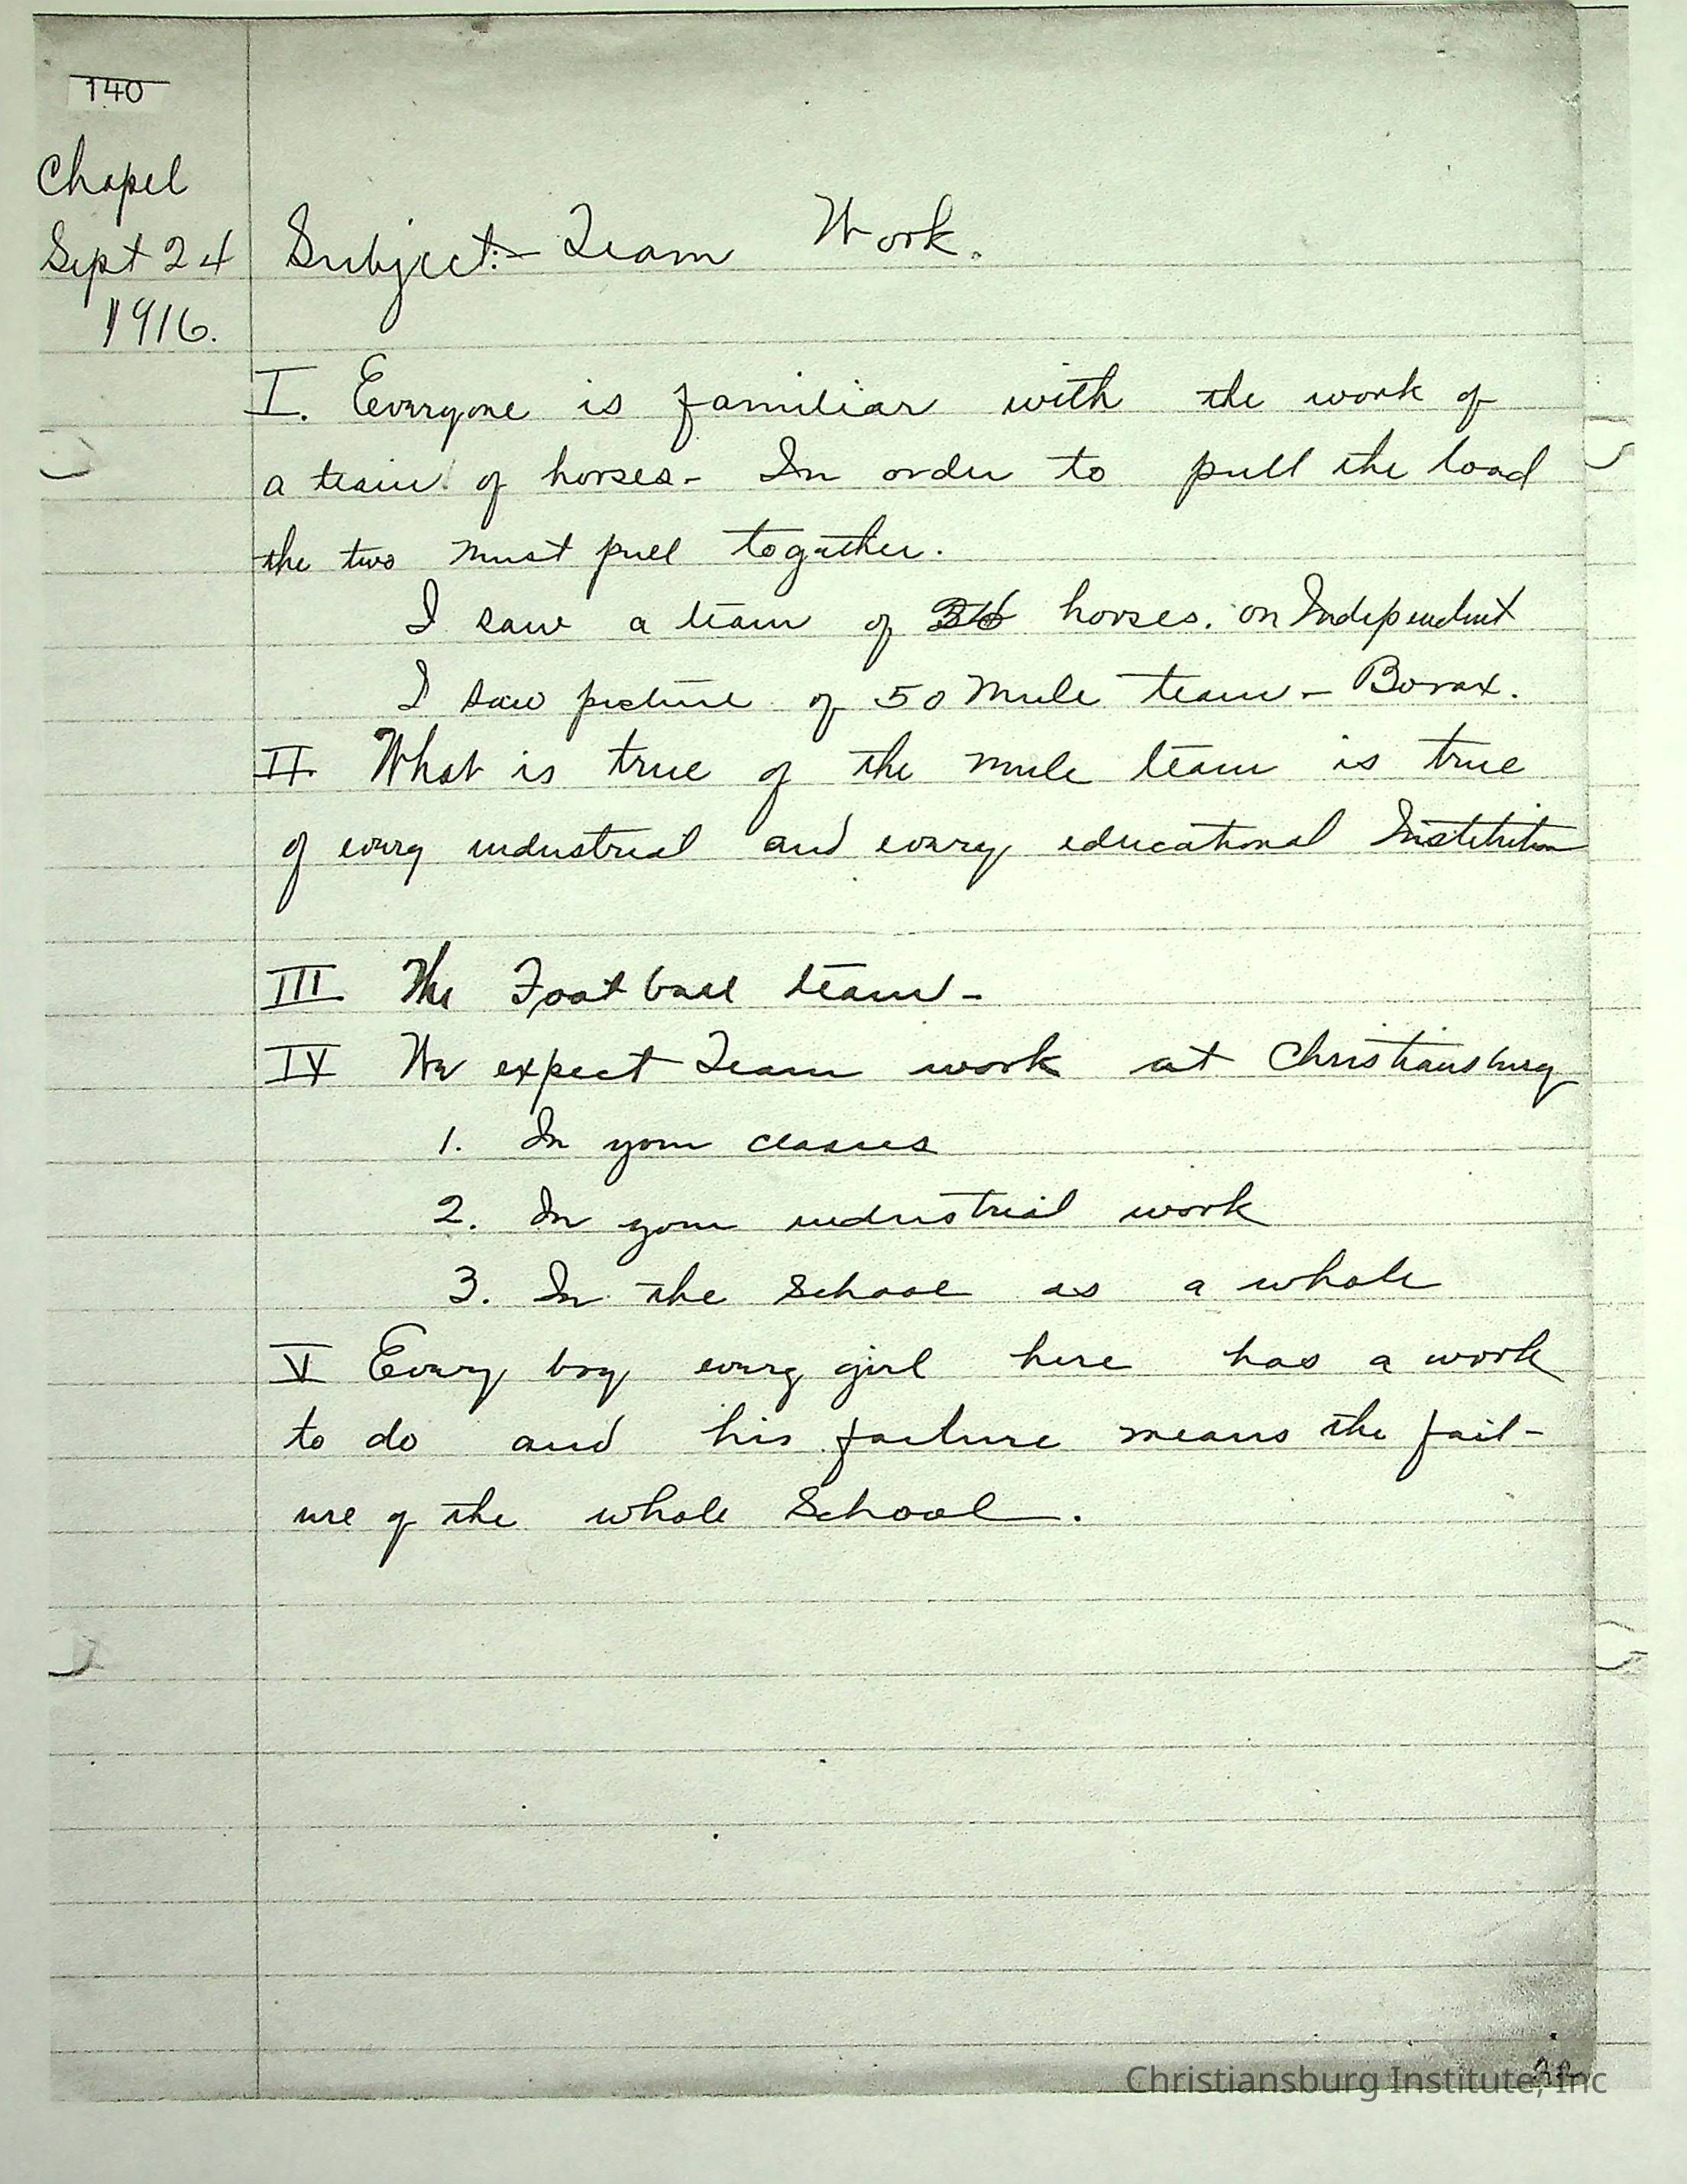 140
Chapel
Sept 24
1916.
Subject:- Team Work.
I. Everyone is familiar with the work of
a team of horses- In order to pull the load
the two must pull together.
I saw a team of horses. on Independent
I saw picture of 50 Mule team - Borax.
II What is true of the mule team is true
of every industrial and every educational Institution
III The Foot ball team-
IV We expect Team work at Christiansburg
1. In your classes
2. In your industrial work
3. In the School as a whole
V Every boy every girl here has a work
to do and his failure means the fail-
ure of the whole School.
Christiansburg Institute, Inc